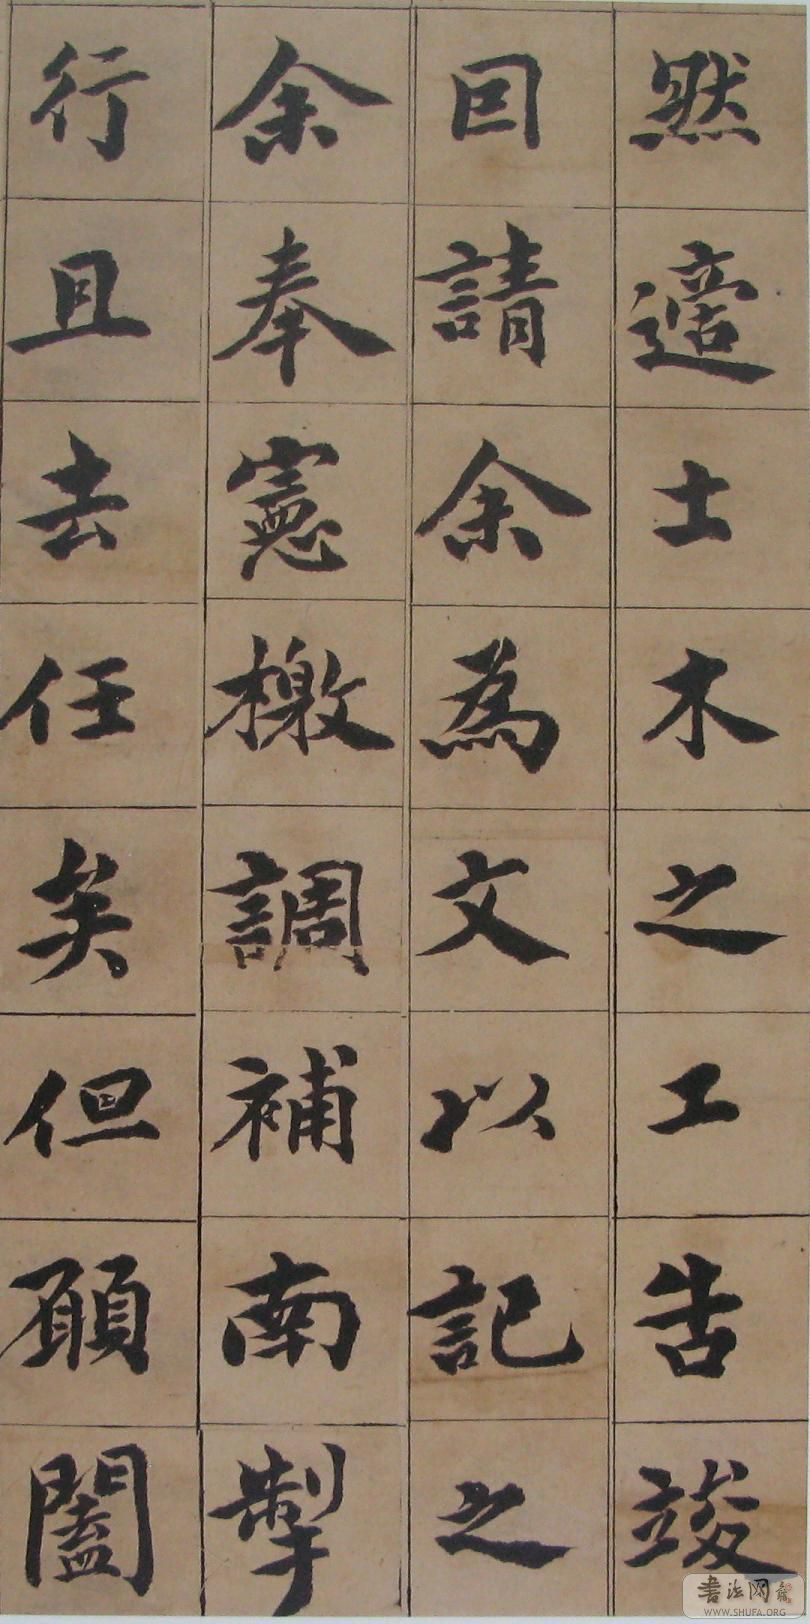 然適土木之工告竣
回請余為文以記之
余奉憲檄調補南掣
行且去任矣但願闔
書法网
WWW.SHUFA.ORG